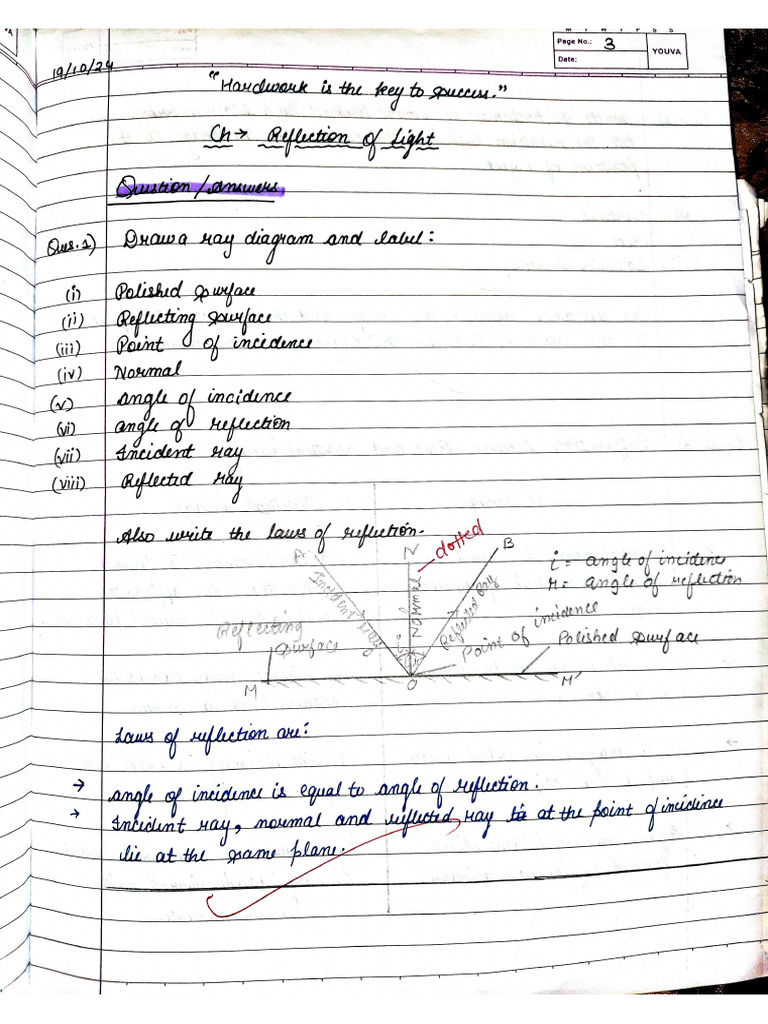 Page No.: 3
Date:
YOUVA
19/10/24
"Hardwork is the key to success."
Ch → Reflection of Light
Question/answers
Ques.1) Draw a ray diagram and label:
(i) Polished surface
(ii) Reflecting surface
(iii) Point of incidence
(iv) Normal
(v) angle of incidence
(vi) angle of reflection
(vii) Incident ray
(viii) Reflected ray
Also write the laws of reflection.
dotted
A
N
B
i = angle of incidence
r = angle of reflection
Incident ray
Normal
Reflected Ray
Reflecting surface
Point of incidence
Polished surface
i
r
M
O
M'
Laws of reflection are:
→ angle of incidence is equal to angle of reflection.
→ Incident ray, normal and reflected ray at the point of incidence
lie at the same plane.